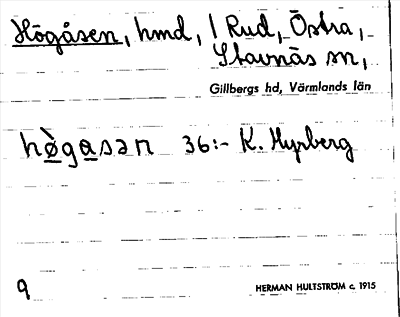 Högåsen, hmd, 1 Rud, Östra,
Stavnäs sn,
Gillbergs hd, Värmlands län
hø̀gasən 36:- K. Myrberg
9
HERMAN HULTSTRÖM c. 1915